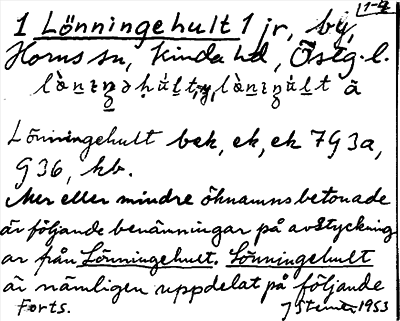 1-4
1 Lönningehult 1 jr, by,
Horns sn, Kinda hd, Östg. l.
å
Lönningehult bek, ek, ek 7G 3a,
G36, hb.
Mer eller mindre öknamnsbetonade
är följande benämningar på avstyckning
ar från Lönningehult. Lönningehult
är nämligen uppdelat på följande
Forts. 1953